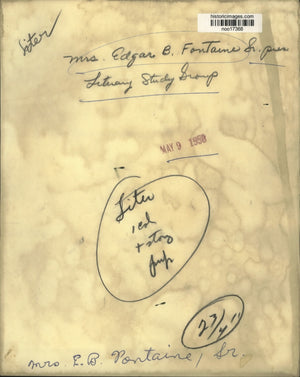 historicimages.com
noo17368
Liter
Mrs. Edgar B. Fontaine Sr. pres
Literary Study Group
MAY 9 1950
Liter
1 col
+ story
23/4"
Mrs. E. B. Fontaine, Sr.